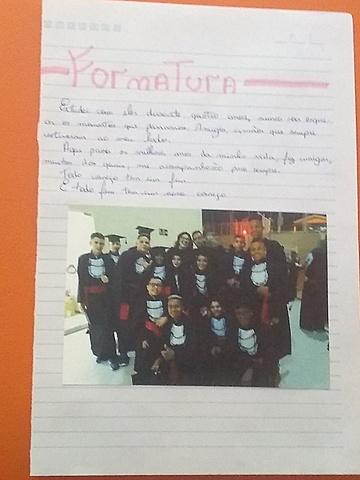 Formatura
Estudei com eles durante quatro anos, nunca vou esque-
cer os momentos que passamos. Amigos, irmãos que sempre
estiveram ao meu lado.
Aqui passei os melhores anos da minha vida, fiz amigos,
muitos dos quais, me acompanharão para sempre.
Todo começo tem um fim.
E todo fim tem um novo começo.